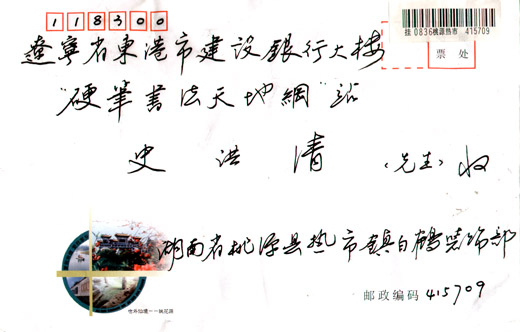 118300
挂 0836 桃源热市 415709
票 处
遼寧省東港市建设銀行大楼
"硬筆書法天地網"站
史洪清（先生）收
湖南省桃源县热市鎮白鶴装饰部
世外仙境——桃花源
邮政编码 415709